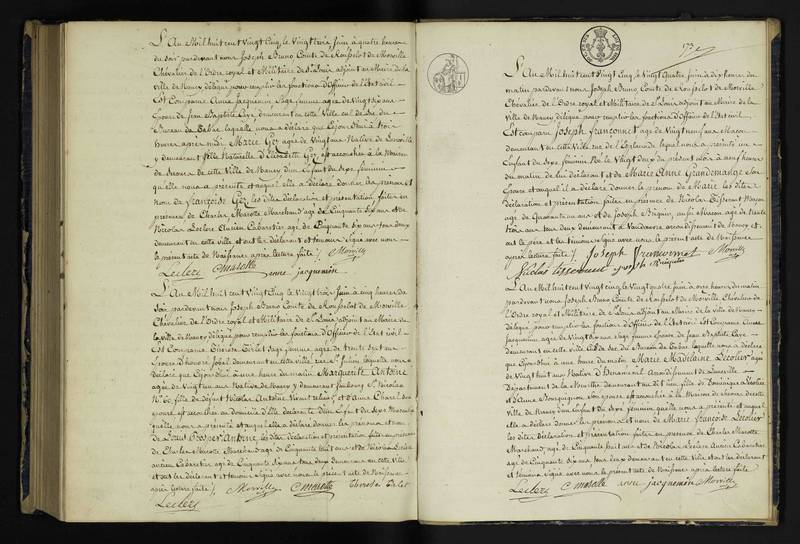 L'An Mil huit cent Vingt Cinq, le Vingt trois Juin à quatre heures
du Soir pardevant nous Joseph Bruno Comte de Rousselot de Morville
Chevalier de l'Ordre royal et Militaire de St Louis adjoint au Maire de la
Ville de Nancy délégué pour remplir les fonctions d'Officier de l'Etat civil
Est Comparue Anne Jacquemin Sage femme agée de Vingt six ans
Epouse de Jean Baptiste Caye demeurant en cette Ville
laquelle nous a déclaré que Cejourd'hui à trois
heures après midi Marie Gez agée de Vingt ans Native de
y demeurant fille Naturelle d'Elisabeth Gez est accouchée à la Maison
de Secours de cette Ville de Nancy d'un Enfant du Sexe féminin
qu'elle nous a présenté et auquel elle a déclaré donner les prénom et
nom de françoise Gez les dites déclaration et présentation faites en
présence de Charles Marotte Marchand agé de Cinquante six ans et de
Nicolas Leclerc Ancien Cabaretier agé de Cinquante six ans tous deux
demeurant en cette ville et ont les déclarant et témoins Signé avec nous
le présent acte de Naissance après lecture faite. Morville
Leclerc C marotte anne jacquemin
L'An Mil huit cent Vingt Cinq le Vingt trois Juin à cinq heures du
Soir pardevant nous Joseph Bruno Comte de Rousselot de Morville
Chevalier de l'Ordre royal et Militaire de St Louis adjoint au Maire de
la Ville de Nancy délégué pour remplir les fonctions d'Officier de l'Etat civil
Est Comparue Thérèse Sage femme agée de trente
Epouse d'honoré demeurant en cette ville rue St Julien laquelle nous a
déclaré que Cejourd'hui à une heure du matin Marguerite Antoine
agée de Vingt un ans Native de Nancy y demeurant faubourg St Nicolas
No fille de défunt Nicolas Antoine et d'Anne
est accouchée en domicile d'Elle déclarante d'un Enfant du Sexe Masculin
qu'elle nous a présenté et auquel elle a déclaré donner les prénoms et nom
de Louis Prosper Antoine, les dites déclaration et présentation faites en présence
de Charles Marotte Marchand agé de Cinquante huit ans et de Nicolas Leclerc
ancien Cabaretier agé de Cinquante six ans tous deux demeurant en cette Ville
et ont les déclarant et témoins Signé avec nous le présent acte de Naissance
après lecture faite. Morville C marotte Thérèse
Leclerc
173
L'An Mil huit cent Vingt Cinq, le Vingt quatre Juin à dix heures du
matin pardevant nous Joseph Bruno Comte de Rousselot de Morville
Chevalier de l'Ordre royal et Militaire de St Louis adjoint au Maire de la
Ville de Nancy délégué pour remplir les fonctions d'Officier de l'Etat civil
Est comparu Joseph franconnet agé de Vingt neuf ans Maçon
demeurant en cette Ville rue de l'Esplanade lequel nous a présenté un
Enfant du Sexe féminin Né le Vingt deux du présent mois à neuf heures
du matin de lui déclarant et de Marie Anne Grandemange Son
Epouse et auquel il a déclaré donner le prénom de Marie les dites
déclaration et présentation faites en présence de Nicolas Maçon
agé de Quarante ans et de Joseph aussi Maçon agé de trente
trois ans tous deux demeurant à Vandoeuvre arrondissement de Nancy et
ont le père et les témoins Signé avec nous le présent acte de Naissance
après lecture faite. Joseph franconnet Morville
Nicolas Joseph
L'An Mil huit cent Vingt Cinq le Vingt quatre Juin à onze heures du matin
pardevant nous Joseph Bruno Comte de Rousselot de Morville Chevalier de
l'Ordre royal et Militaire de St Louis adjoint au Maire de la Ville de Nancy
délégué pour remplir les fonctions d'Officier de l'Etat civil Est Comparue Anne
Jacquemin agée de Vingt six ans Sage femme Epouse de Jean Baptiste Caye
demeurant en cette Ville laquelle nous a déclaré
que Cejourd'hui à une heure du matin Marie Madelaine Lecolier agée
de Vingt huit ans Native d'Hénaménil Arrondissement de Lunéville
Département de la Meurthe demeurant au dit lieu fille de Dominique Lecolier
et d'Anne Bourguignon Son épouse est accouchée à la Maison de Secours de cette
Ville de Nancy d'un Enfant du Sexe féminin qu'elle nous a présenté et auquel
elle a déclaré donner les prénoms et nom de Marie françoise Lecolier
les dites déclaration et présentation faites en présence de Charles Marotte
Marchand agé de Cinquante huit ans et de Nicolas Leclerc Ancien Cabaretier
agé de Cinquante Six ans tous deux demeurant en cette Ville et ont les déclarant
et témoins Signé avec nous le présent acte de Naissance après lecture faite
Leclerc C marotte anne jacquemin Morville